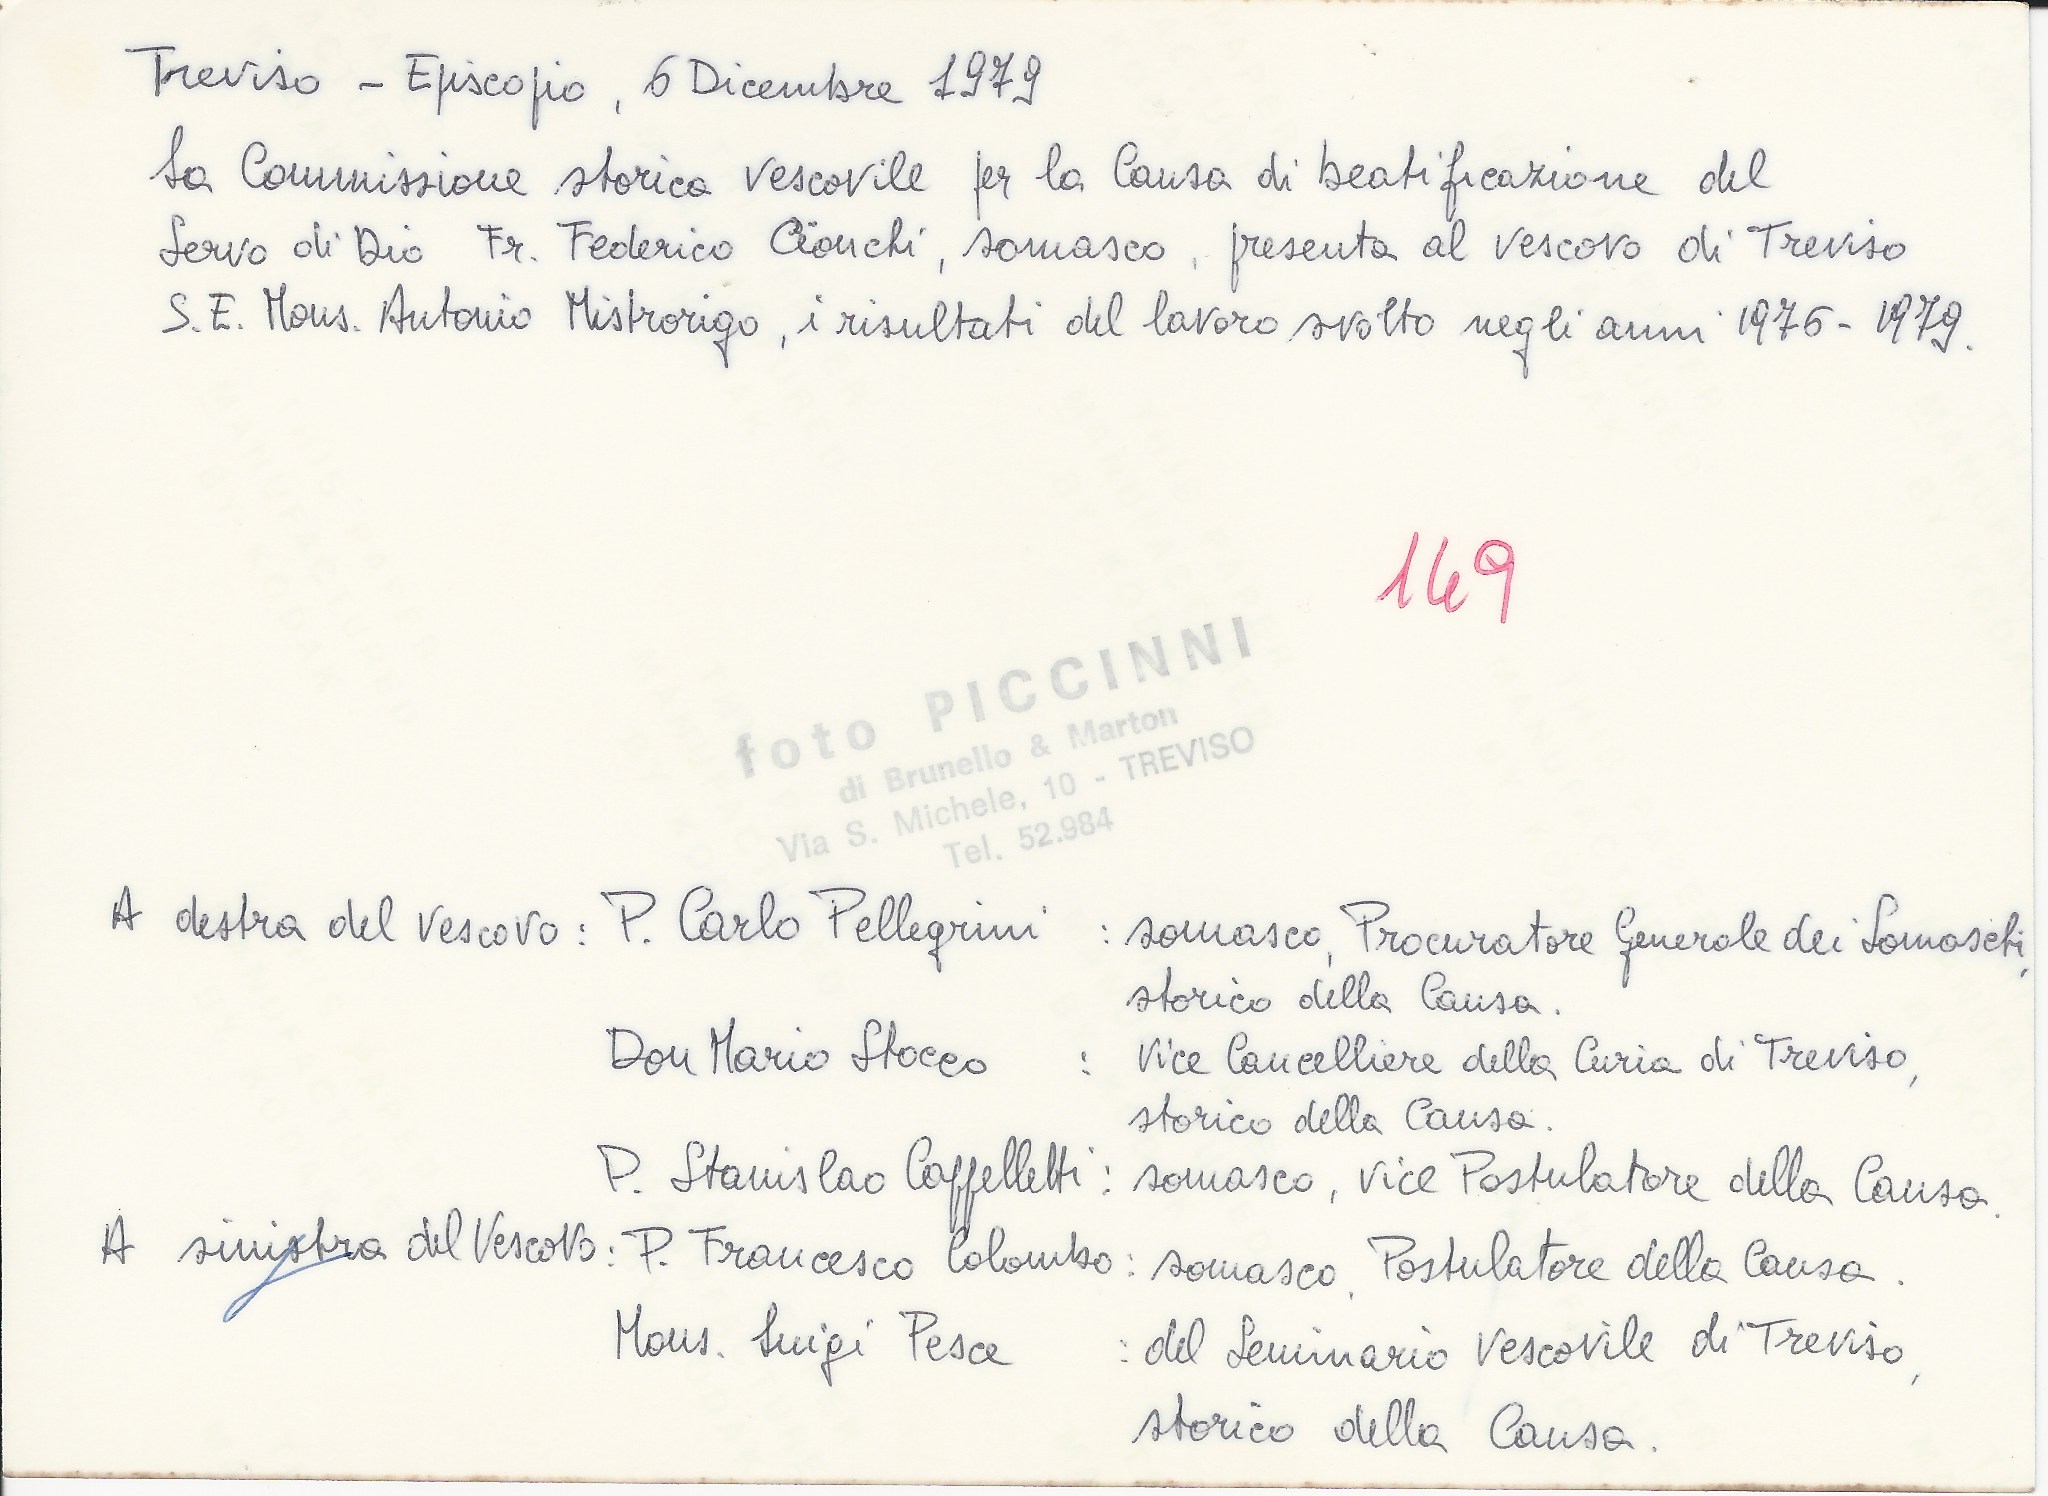 Treviso - Episcopio, 6 Dicembre 1979
La Commissione storica vescovile per la Causa di beatificazione del
Servo di Dio Fr. Federico Cionchi, somasco, presenta al vescovo di Treviso
S.E. Mons. Antonio Mistrorigo, i risultati del lavoro svolto negli anni 1976-1979.
149
foto PICCINNI
di Brunello & Marton
Via S. Michele, 10 - TREVISO
Tel. 52.984
A destra del vescovo: P. Carlo Pellegrini : somasco, Procuratore Generale dei Somaschi,
storico della Causa.
Don Mario Stocco : vice Cancelliere della Curia di Treviso,
storico della Causa.
P. Stanislao Cappelletti: somasco, vice Postulatore della Causa.
A sinistra del Vescovo: P. Francesco Colombo: somasco, Postulatore della Causa.
Mons. Luigi Pesce : del Seminario vescovile di Treviso,
storico della Causa.